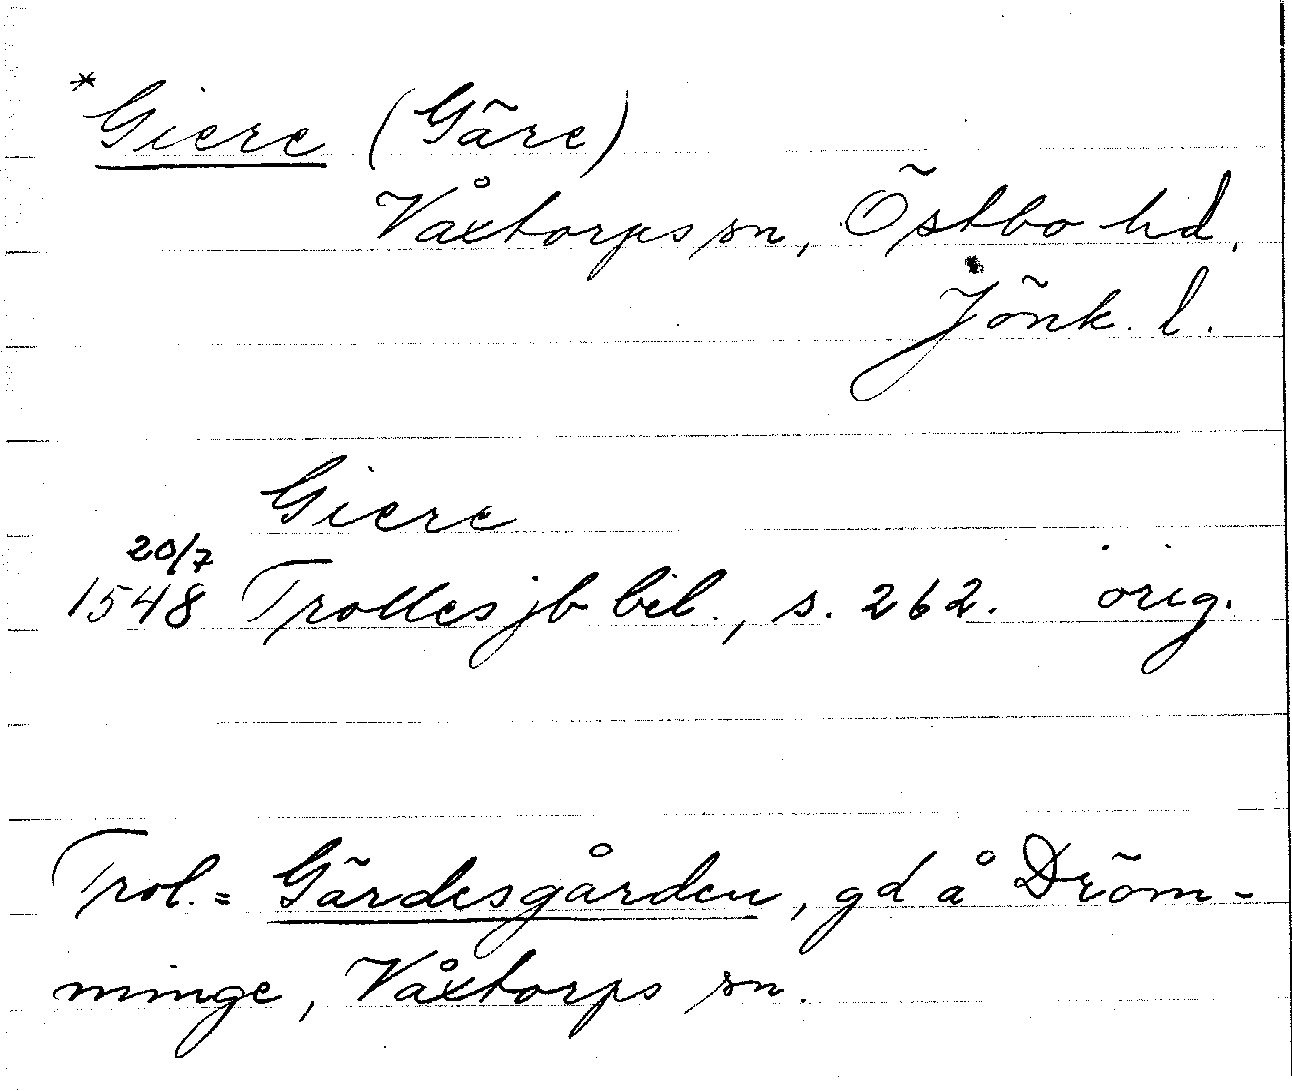 *Giere (Gäre)
Våxtorps sn, Östbo hd.
Jönk. l.
Giere
20/7
1548 Trolles jb bil., s. 262. orig.
Trol. = Gärdesgården, gd å Dröm-
minge, Våxtorps sn.